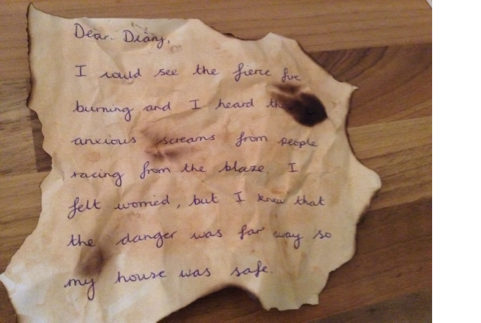 Dear Diary,
I could see the fierce fire
burning and I heard the
anxious screams from people
racing from the blaze. I
felt worried, but I knew that
the danger was far away so
my house was safe.